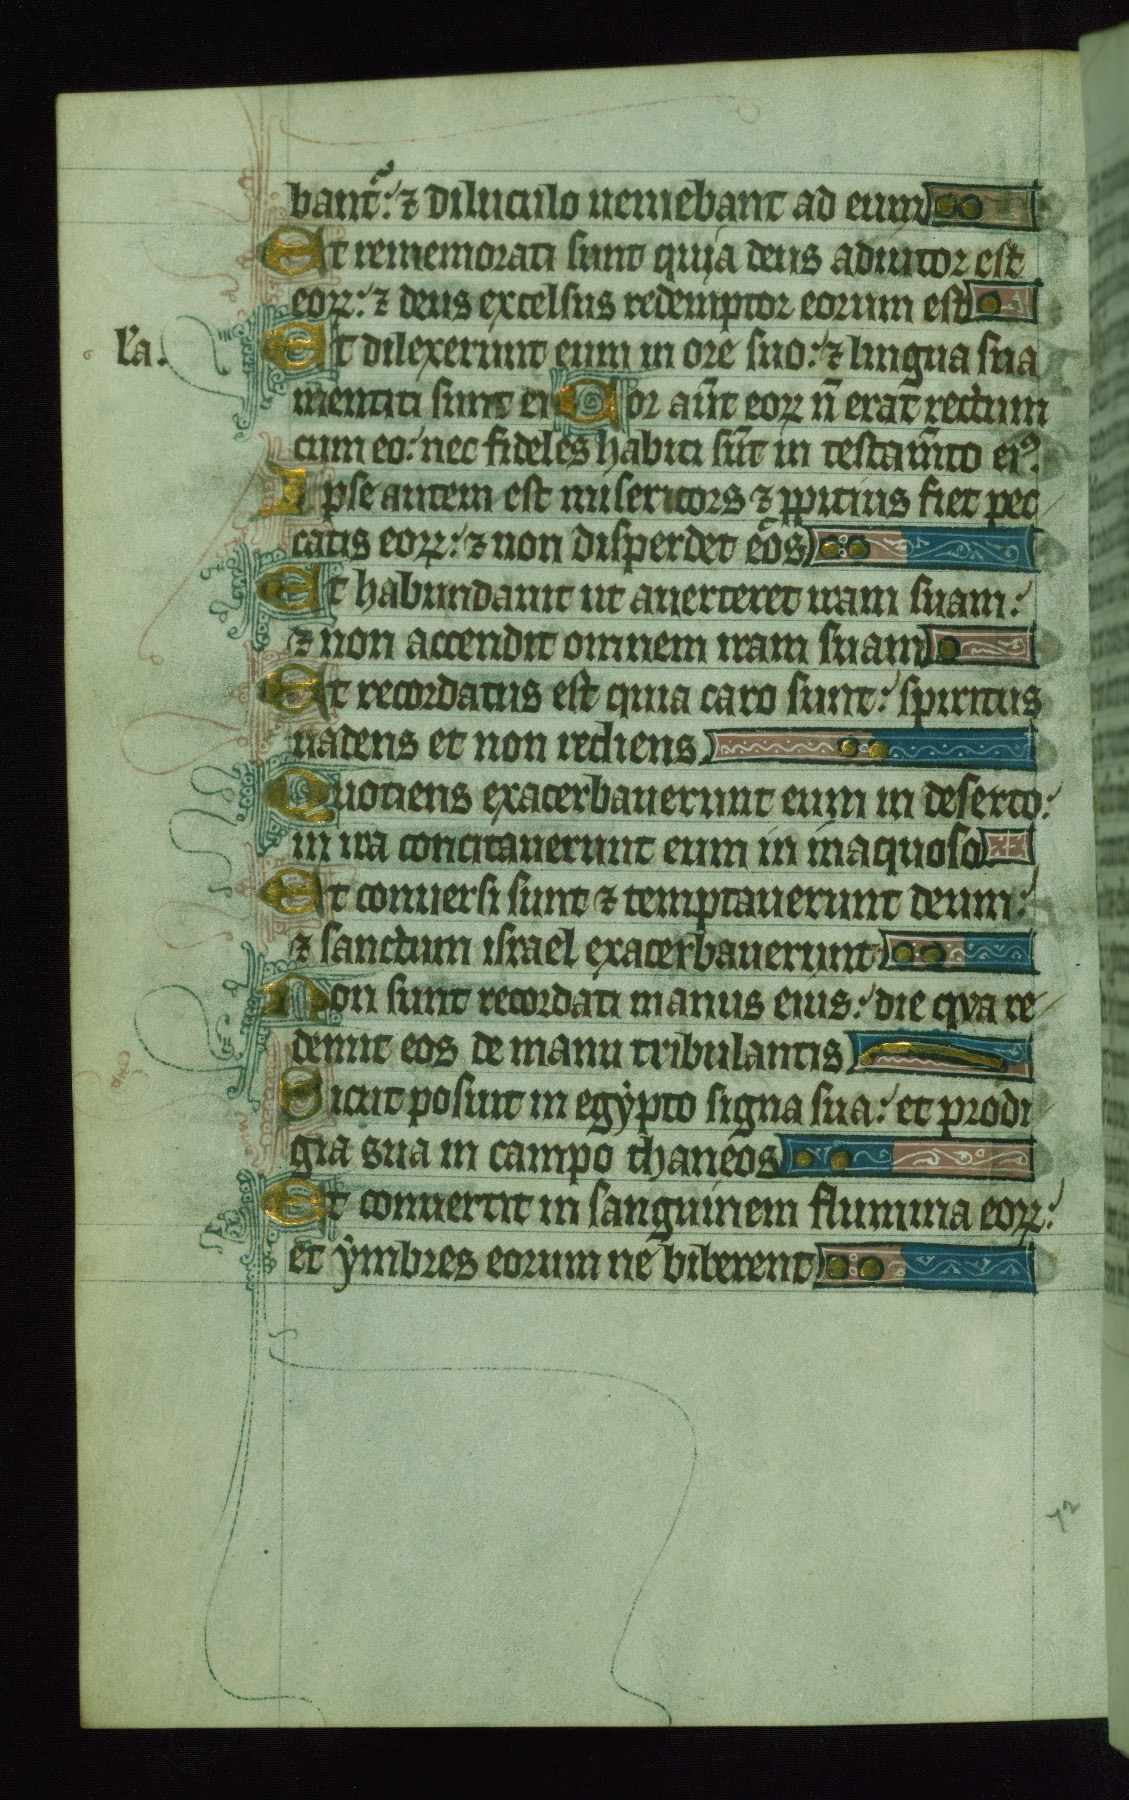 bant᷑: ⁊ diluculo ueniebant ad eum
Et rememorati sunt quia deus adiutor est
eoꝝ: ⁊ deus excelsus redemptor eorum est
Et dilexerunt eum in ore suo: ⁊ lingua sua
mentiti sunt ei Cor aut̄ eoꝝ n̄ erat rectum
cum eo: nec fideles habiti sūt in testam̄to eiꝰ.
Ipse autem est misericors ⁊ ꝓpitius fiet pec
catis eoꝝ: ⁊ non disperdet eos
Et habundauit ut auerteret iram suam:
⁊ non accendit omnem iram suam
Et recordatus est quia caro sunt: spiritus
uadens et non rediens
Quotiens exacerbauerunt eum in deserto:
in ira concitauerunt eum in inaquoso
Et conuersi sunt ⁊ temptauerunt deum:
⁊ sanctum israel exacerbauerunt
Non sunt recordati manus eius: die qua re
demit eos de manu tribulantis
Sicut posuit in egẏpto signa sua: et prodi
gia sua in campo thaneos
Et conuertit in sanguinem flumina eoꝝ:
et ẏmbres eorum ne biberent
72